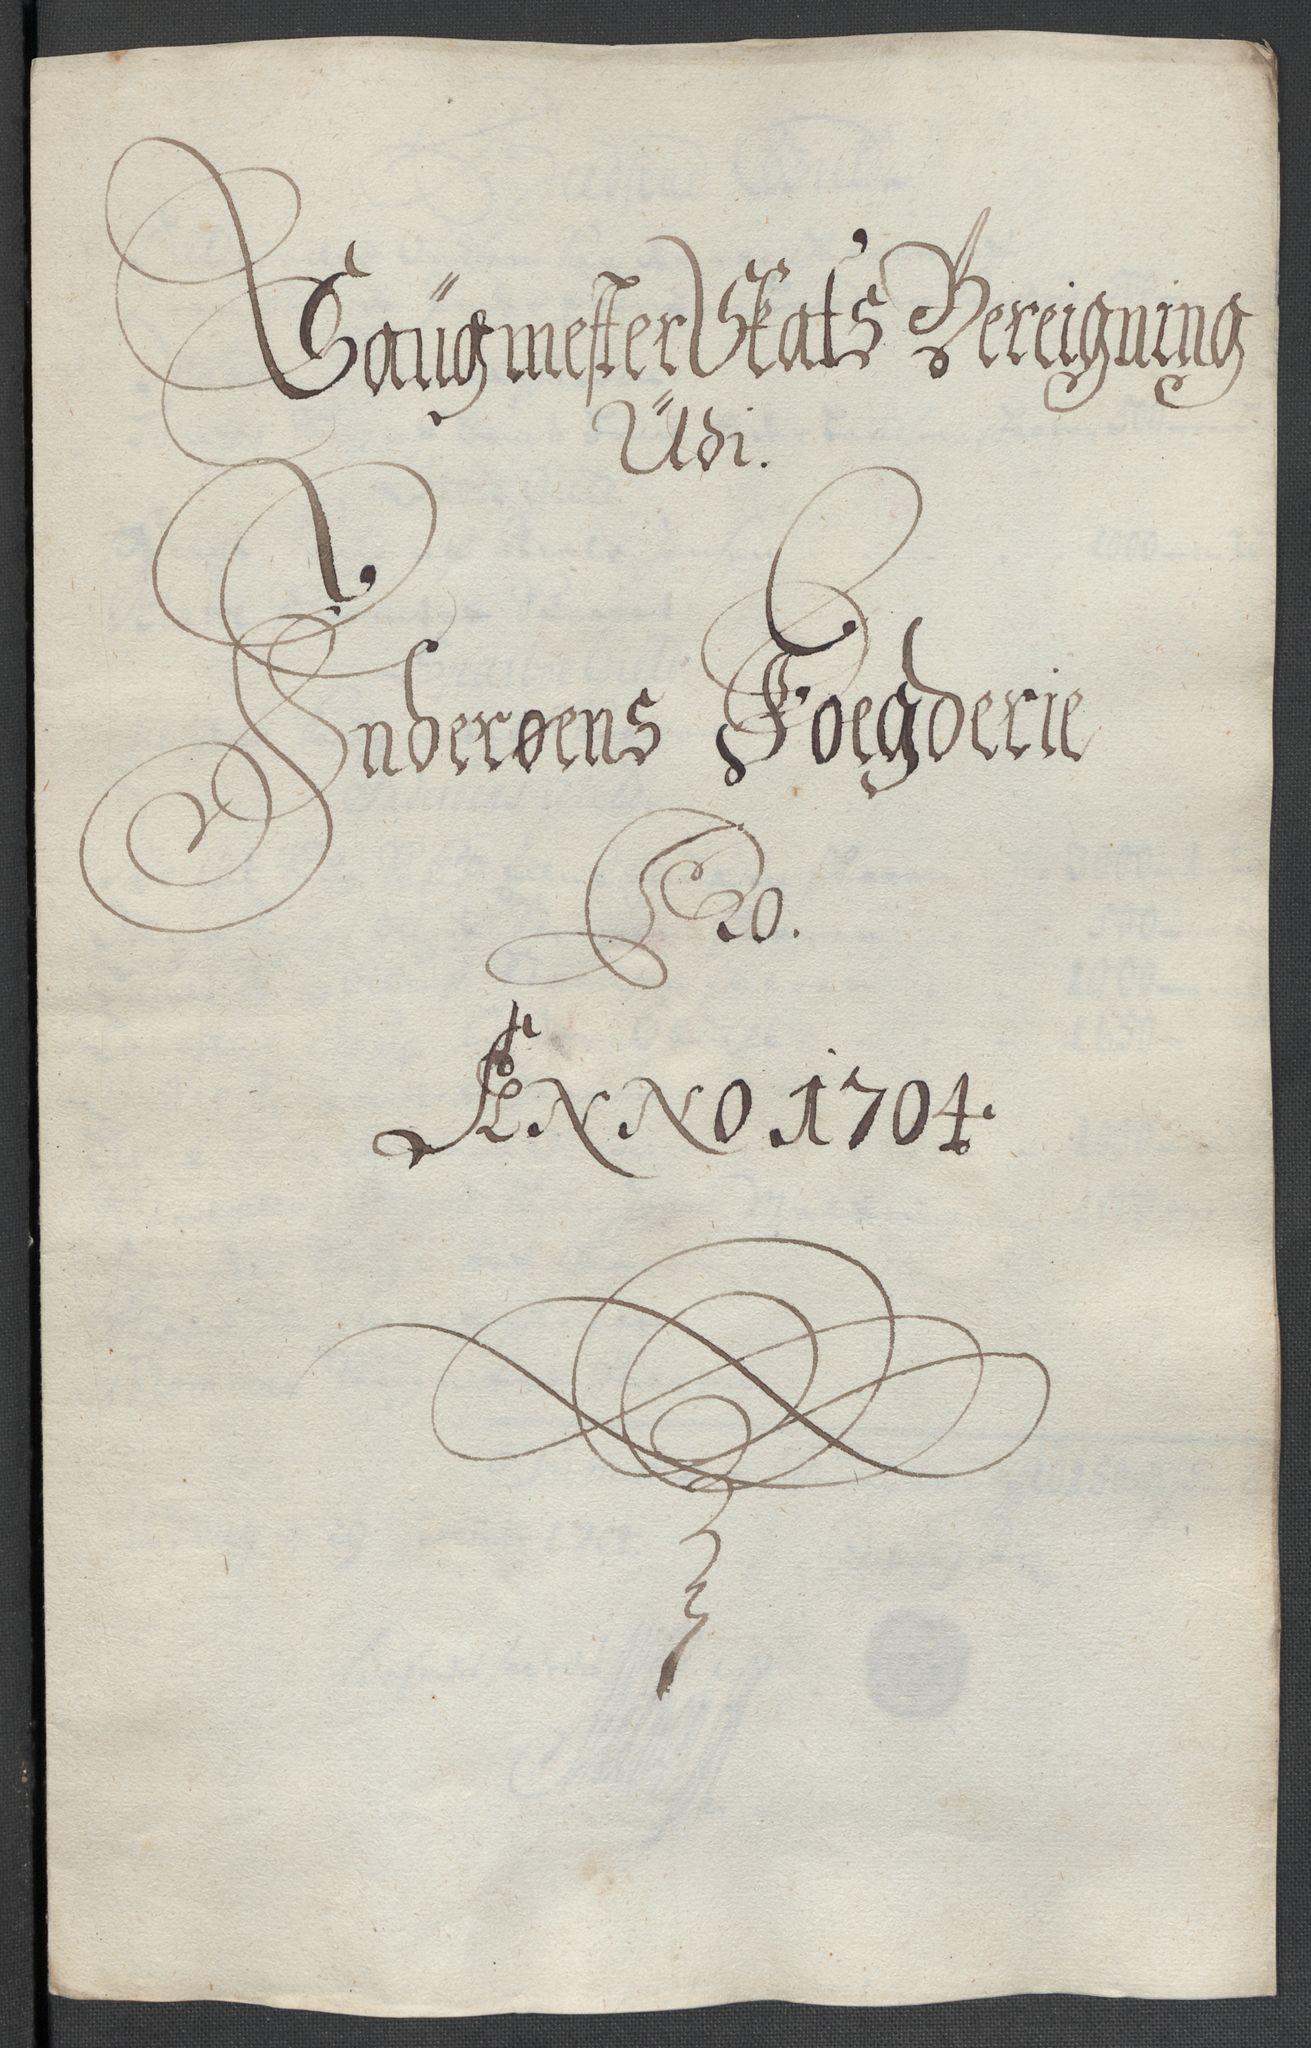 Saugmester Skats Bereigning
Udi.
Inderøens Foegderie
Pro.
ANNO 1704.